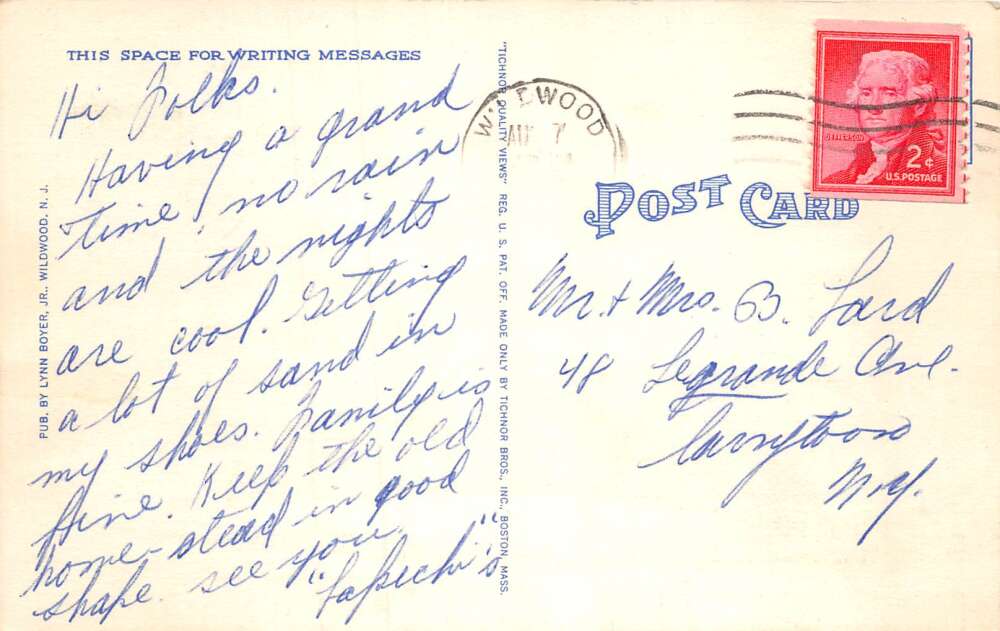 THIS SPACE FOR WRITING MESSAGES
Hi Folks.
Having a grand
time! no rain
and the nights
are cool. Getting
a lot of sand in
my shoes. Family is
fine. Keep the old
home-stead in good
shape. see you.
PUB. BY LYNN BOYER, JR., WILDWOOD, N. J.
"TICHNOR QUALITY VIEWS" REG. U. S. PAT. OFF. MADE ONLY BY TICHNOR BROS., INC., BOSTON, MASS.
WOOD
7
JEFFERSON
2¢
U.S. POSTAGE
POST CARD
Mr. + Mrs. B.
48 Legrande Ave.
N.Y.